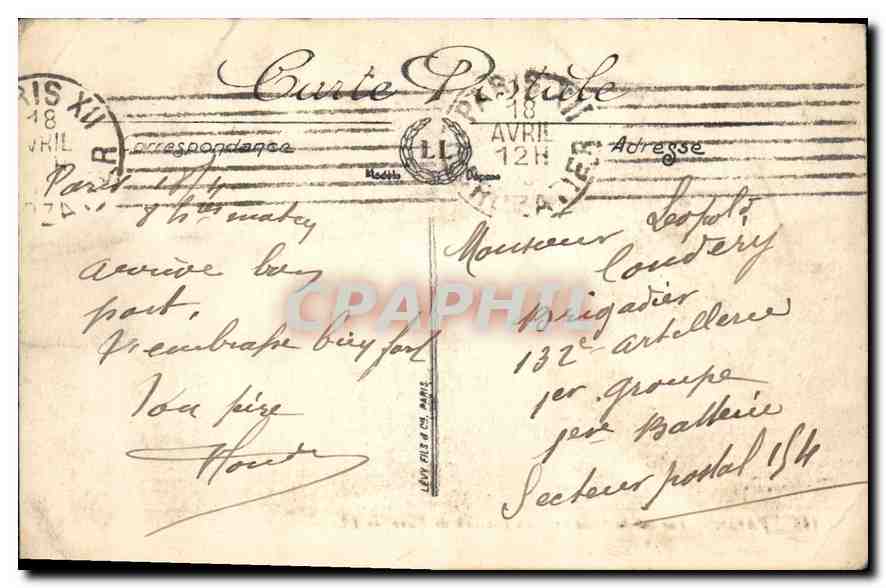 Carte Postale
PARIS XII
18
AVRIL
PARIS XII
18
AVRIL
12H
Correspondance
LL
Modèle Déposé
Adresse
Paris 18/4
8 h res matin
arrivé bon
port.
T'embrasse bien fort
Ton père
LÉVY FILS & Cie, PARIS
Monsieur Léopold
Coudéry
Brigadier
132e artillerie
1er groupe
1ere Batterie
Secteur postal 154
CPAPHIL